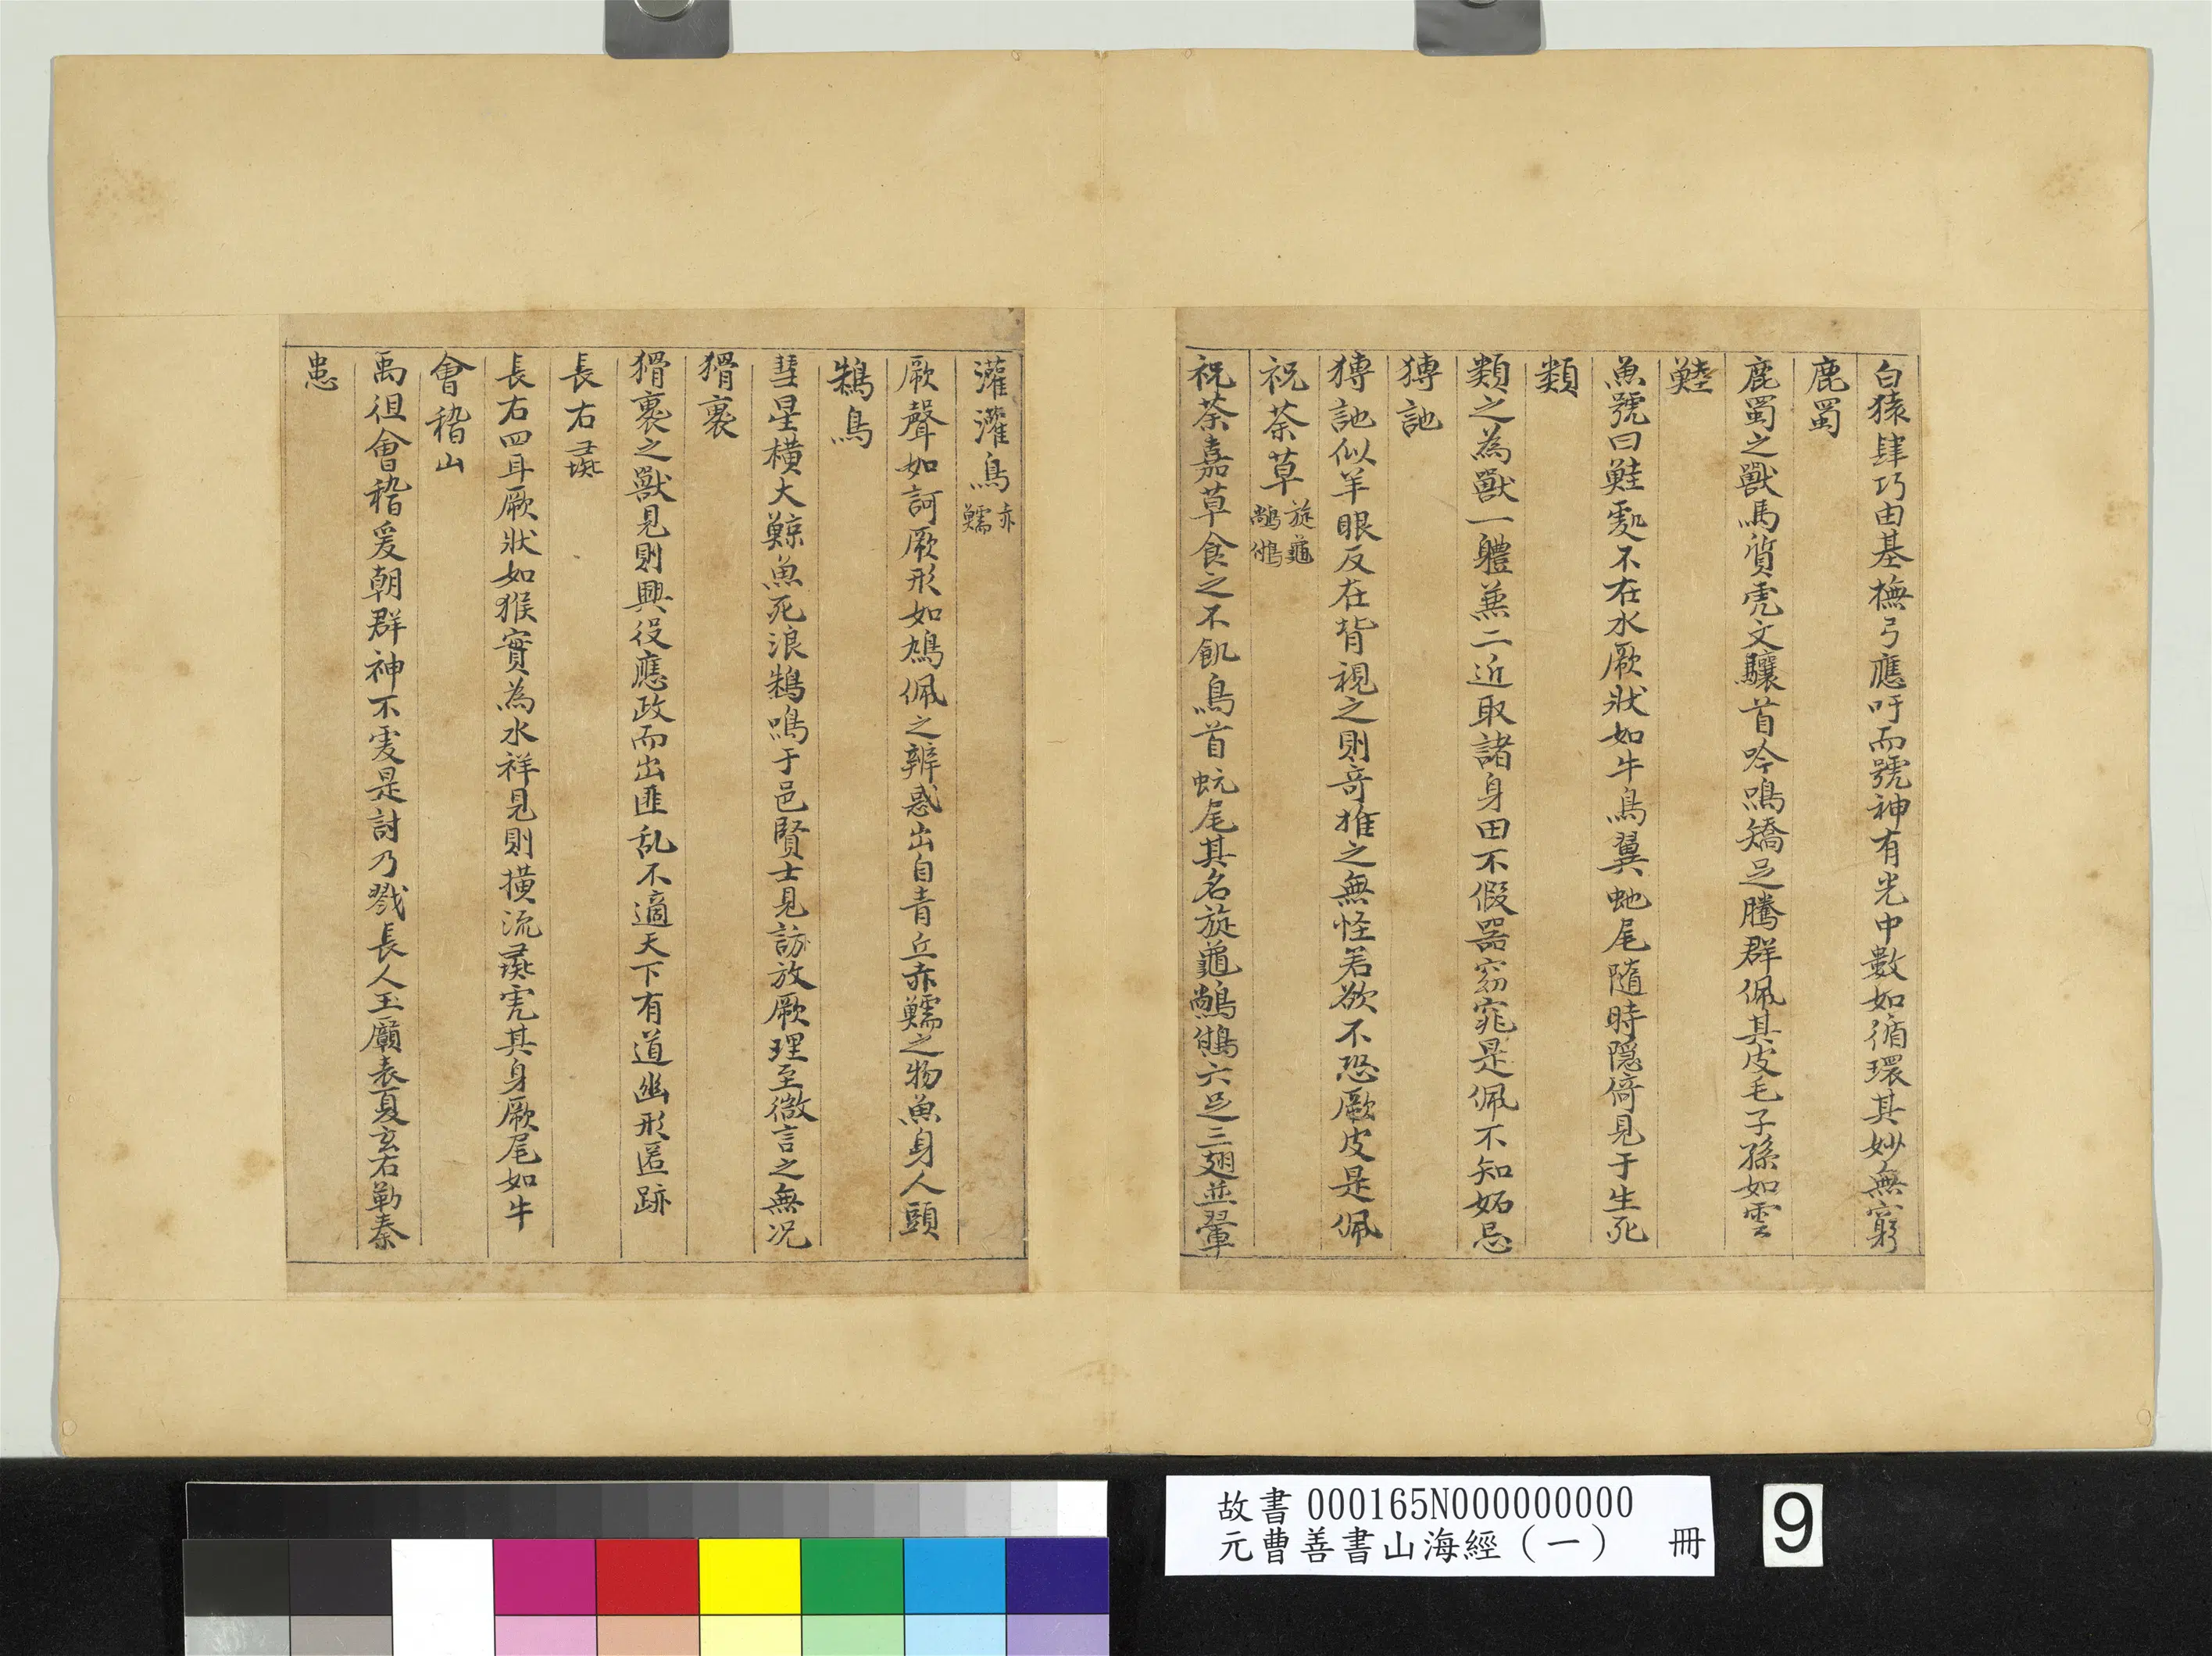 白猿肆巧由基撫弓應吁而號神有光中數如循環其妙無窮
鹿蜀
鹿蜀之獸馬質虎文驤首吟鳴矯足騰群佩其皮毛子孫如雲
鯥
魚號曰鯥處不在水厥狀如牛鳥翼虵尾隨時隱倚見于生死
類
類之為獸一軆蒹二近取諸身田不假器窈窕是佩不知妬忌
猼訑
猼訑似羊眼反在背視之則竒推之無怪若欲不恐厥皮是佩
祝荼草 旋龜 䳤䳜
祝荼嘉草食之不飢鳥首虻尾其名旋龜䳤䳜六足三翅並翬
灌灌鳥 赤鱬
厥聲如訶厥形如鳩佩之辨惑出自青丘赤鱬之物魚身人頭
鴸鳥
彗星橫大鯨魚死浪鴸鳴于邑賢士見訪放厥理至微言之無况
猾褢
猾褢之獸見則興役應政而出匪乱不適天下有道幽形匿跡
長右 彘
長右四耳厥狀如猴實為水祥見則横流彘虎其身厥尾如牛
會稽山
禹徂會稽爰朝群神不虔是討乃戮長人玉匱表夏玄石勒秦
患
故書000165N000000000
元曹善書山海經（一） 冊
9